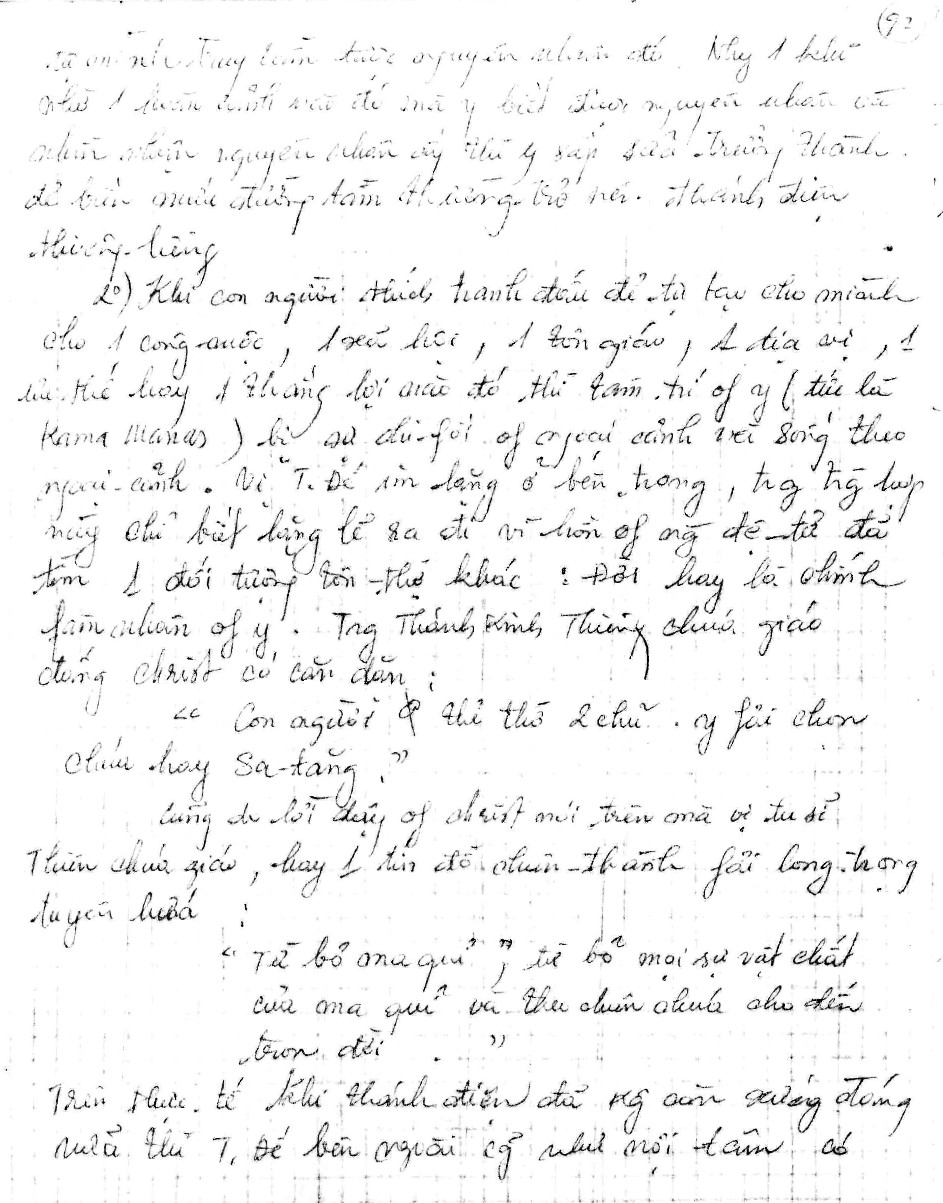 (92)
truy tầm được nguyên nhân đó. Nhg 1 khi
nhờ 1 hoàn cảnh nào đó mà y biết được nguyên nhân và
nhìn nhận nguyên nhân ấy thì y sắp sửa trưởng thành
để biến nước đường tầm thường trở nên thánh điện
thiêng-liêng
2º) Khi con người thích tranh đấu để tự tạo cho mình
cho 1 công-cuộc, 1 xã hội, 1 tôn giáo, 1 địa vị, 1
ưu thế hay 1 thắng lợi nào đó thì tâm trí of y (tức là
Kama Manas) bị sự chi-fối of ngoại cảnh và sống theo
ngoại-cảnh. Vị T. Đế im lặng ở bên trong, trg trg hợp
này chỉ biết lặng lẽ ra đi vì hồn of ng đệ-tử đã
tìm 1 đối tượng tôn-thờ khác: Đời hay là chính
fàm nhân of y. Trg Thánh Kinh Thiên chúa giáo
đấng Christ có căn dặn:
" Con người thể thờ 2 chủ. y fải chọn
chúa hay Sa-tăng."
Cũng do lời dạy of christ nói trên mà vị tu sĩ
Thiên chúa giáo, hay 1 tín đồ chân-thành fải long-trọng
tuyên hứa :
" Từ bỏ ma quỉ", từ bỏ mọi sự vật chất
của ma quỉ và theo chân chúa cho đến
trọn đời. "
Trên thực tế khi thánh điện đã kg còn xứng đáng
nữa thì T. Đế bên ngoài cg như nội tâm có